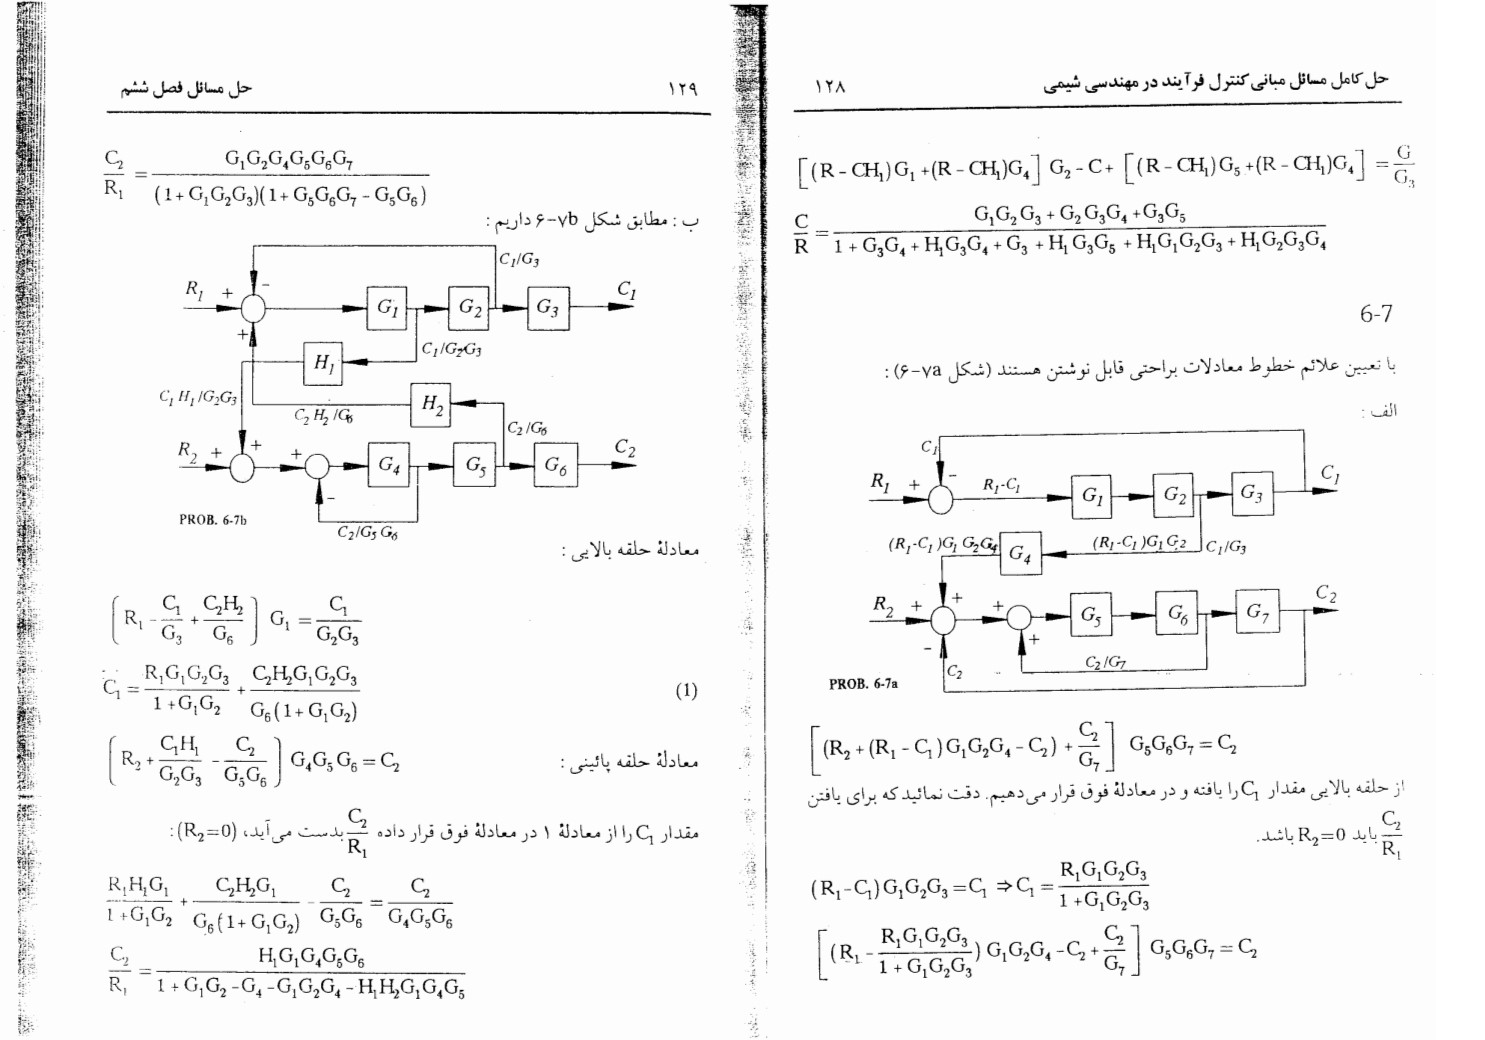 حل کامل مسائل مبانی کنترل فرآیند در مهندسی شیمی
۱۲۸
[(R - CH₁)G₁ +(R - CH₁)G₄] G₂ - C+ [(R - CH₁)G₅ +(R - CH₁)G₄] = G/G₃
C/R = (G₁G₂G₃ + G₂G₃G₄ +G₃G₅)/(1 + G₃G₄ + H₁G₃G₄ + G₃ + H₁G₃G₅ + H₁G₁G₂G₃ + H₁G₂G₃G₄)
6-7
با تعیین علائم خطوط معادلات براحتی قابل نوشتن هستند (شکل ۶-۷a) :
الف :
C₁
C₁
R₁ + - R₁-C₁ G₁ G₂ G₃
(R₁-C₁)G₁G₂G₄ G₄ (R₁-C₁)G₁G₂ C₁/G₃
C₂
R₂ + + + G₅ G₆ G₇
- + C₂/G₇
C₂
PROB. 6-7a
[(R₂ + (R₁ - C₁)G₁G₂G₄ - C₂) + C₂/G₇] G₅G₆G₇ = C₂
از حلقه بالایی مقدار C₁ را یافته و در معادلهٔ فوق قرار می‌دهیم. دقت نمائید که برای یافتن
C₂/R₁ باید R₂=0 باشد.
(R₁-C₁)G₁G₂G₃ = C₁ ⇒ C₁ = R₁G₁G₂G₃/(1 + G₁G₂G₃)
[(R₁ - R₁G₁G₂G₃/(1 + G₁G₂G₃)) G₁G₂G₄ - C₂ + C₂/G₇] G₅G₆G₇ = C₂
۱۲۹
حل مسائل فصل ششم
C₂/R₁ = G₁G₂G₄G₅G₆G₇/((1 + G₁G₂G₃)(1 + G₅G₆G₇ - G₅G₆))
ب : مطابق شکل ۶-۷b داریم :
C₁/G₃
R₁ + - G₁ G₂ G₃ C₁
+ H₁ C₁/G₂G₃
C₁H₁/G₂G₃ C₂H₂/G₆ H₂
C₂/G₆
R₂ + + + G₄ G₅ G₆ C₂
-
PROB. 6-7b
C₂/G₅G₆
معادلهٔ حلقه بالایی :
(R₁ - C₁/G₃ + C₂H₂/G₆) G₁ = C₁/G₂G₃
C₁ = R₁G₁G₂G₃/(1 + G₁G₂) + C₂H₂G₁G₂G₃/(G₆(1 + G₁G₂)) (1)
معادلهٔ حلقه پائینی :
(R₂ + C₁H₁/G₂G₃ - C₂/G₅G₆) G₄G₅G₆ = C₂
مقدار C₁ را از معادلهٔ ۱ در معادلهٔ فوق قرار داده C₂/R₁ بدست می‌آید، (R₂=0) :
R₁H₁G₁/(1 + G₁G₂) + C₂H₂G₁/(G₆(1 + G₁G₂)) - C₂/G₅G₆ = C₂/G₄G₅G₆
C₂/R₁ = H₁G₁G₄G₅G₆/(1 + G₁G₂ - G₄ - G₁G₂G₄ - H₁H₂G₁G₄G₅)